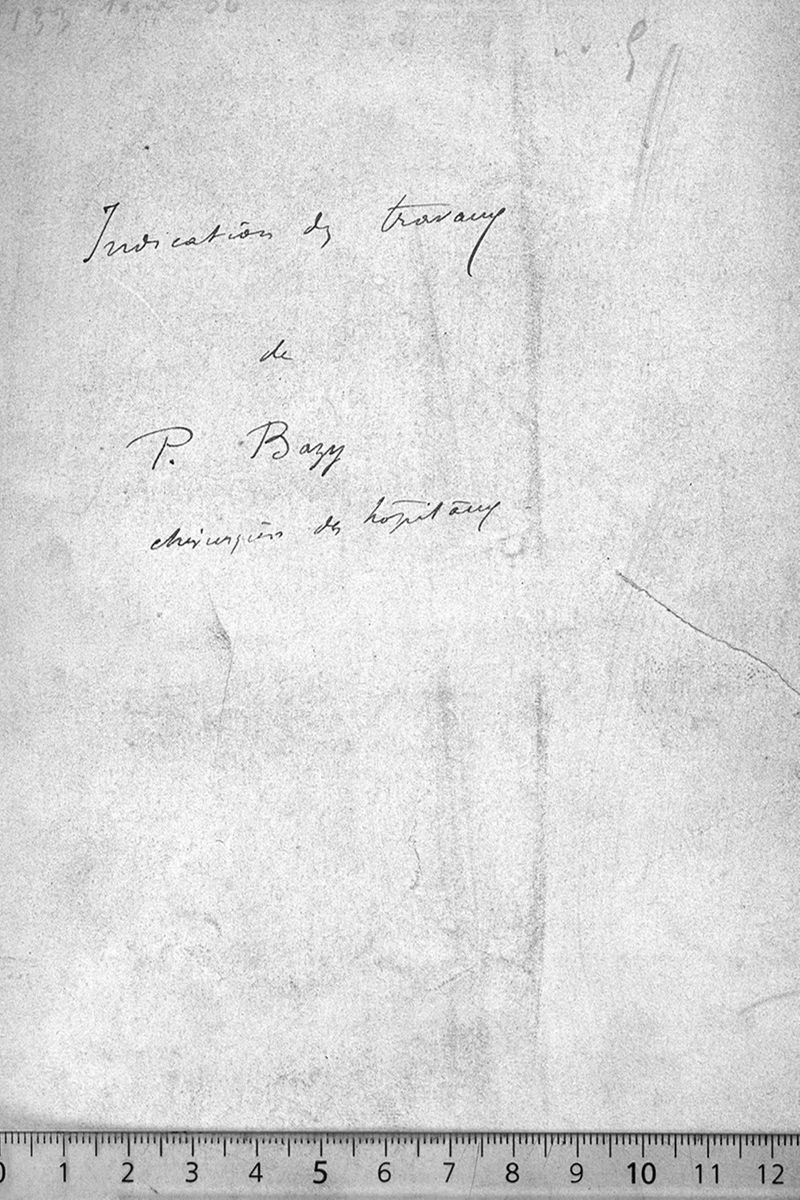 Indication des travaux
de
P. Bazy
chirurgien des hôpitaux
0 1 2 3 4 5 6 7 8 9 10 11 12